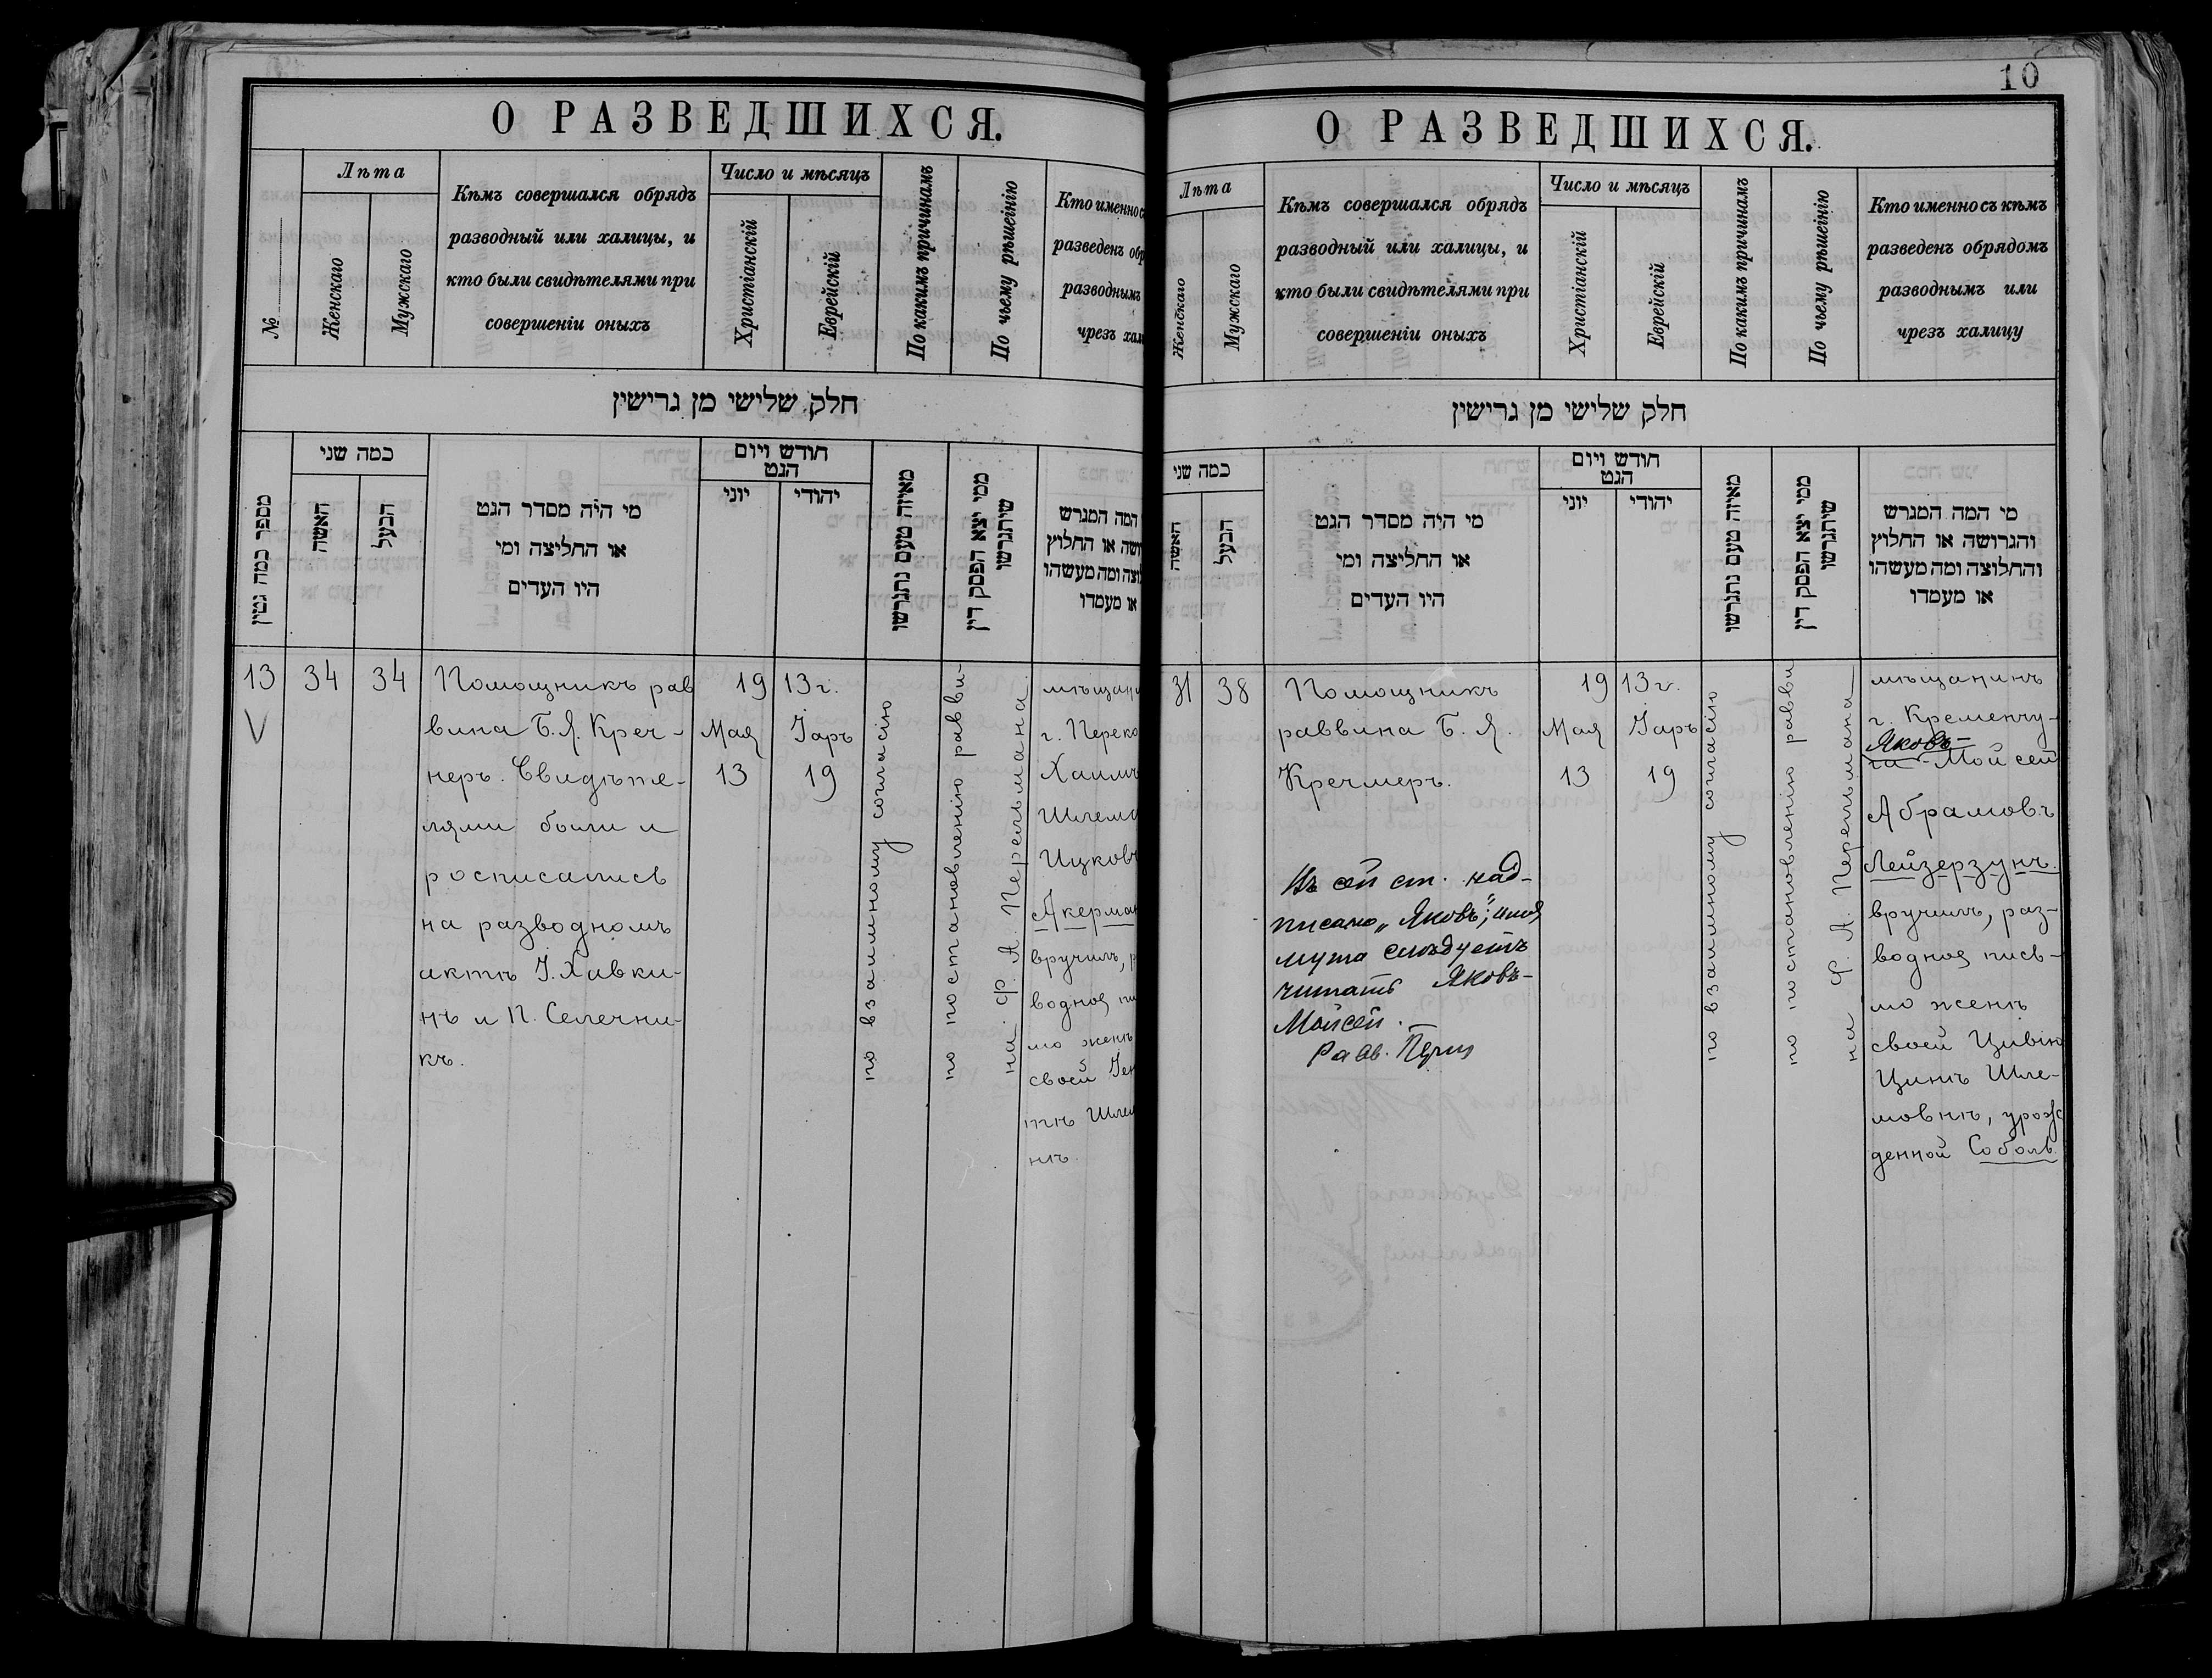 О РАЗВЕДШИХСЯ.
№
Лѣта
Женскаго
Мужскаго
Кѣмъ совершался обрядъ
разводный или халицы, и
кто были свидѣтелями при
совершеніи оныхъ
Число и мѣсяцъ
Христіанскій
Еврейскій
По какимъ причинамъ
По чьему рѣшеінію
Кто именно съ
разведенъ обр
разводнымъ
чрезъ хал
חלק שלישי מן גרישין
מספר כמה גטין
כמה שני
האשה
הבעל
מי היה מסדר הגט
או החליצה ומי
היו העדים
חודש ויום
הגט
יוני
יהודי
מאיזה טעם נתגרשו
ממי יצא הפסק דין
שיתגרשו
המה המגרש
ושה או החלוץ
לוצה ומה מעשהו
או מעמדו
13
34
34
Помощникъ рав
вина Б. Я. Креч-
неръ. Свидѣте-
лями были и
росписались
на разводномъ
актѣ І. Хавки-
нъ и П. Селечни-
къ.
1913 г.
Мая Іаръ
13 19
по взаимному согласію
по постановленію равви-
на ф. А. Перельмана
мѣщани
г. Переко
Хаимъ
Шлема
Ицковъ
Акерман
вручилъ, р
водное пи
мо женѣ
своей Ген
тѣ Шлем
нѣ.
10
О РАЗВЕДШИХСЯ.
Лѣта
Женскаго
Мужскаго
Кѣмъ совершался обрядъ
разводный или халицы, и
кто были свидѣтелями при
совершеніи оныхъ
Число и мѣсяцъ
Христіанскій
Еврейскій
По какимъ причинамъ
По чьему рѣшеінію
Кто именно съ кѣмъ
разведенъ обрядомъ
разводнымъ или
чрезъ халицу
חלק שלישי מן גרישין
כמה שני
האשה
הבעל
מי היה מסדר הגט
או החליצה ומי
היו העדים
חודש ויום
הגט
יוני
יהודי
מאיזה טעם נתגרשו
ממי יצא הפסק דין
שיתגרשו
מי המה המגרש
והגרושה או החלוץ
והחלוצה ומה מעשהו
או מעמדו
31
38
Помощникъ
раввина Б. Я.
Кречмеръ.
Въ сей ст. над-
писано „Яковъ"; имя
мужа слѣдуетъ
читать Яковъ-
Мойсей.
Равв.
1913 г.
Мая Іаръ
13 19
по взаимному согласію
по постановленію равви
на ф. А. Перельмана
мѣщанинъ
г. Кременчу-
Яковъ-
га - Мойсей
Абрамовъ
Лейзерзунъ.
вручилъ, раз-
водное пись-
мо женѣ
своей Цивію
Цинѣ Шле-
мовнѣ, урож
денной Соболь.